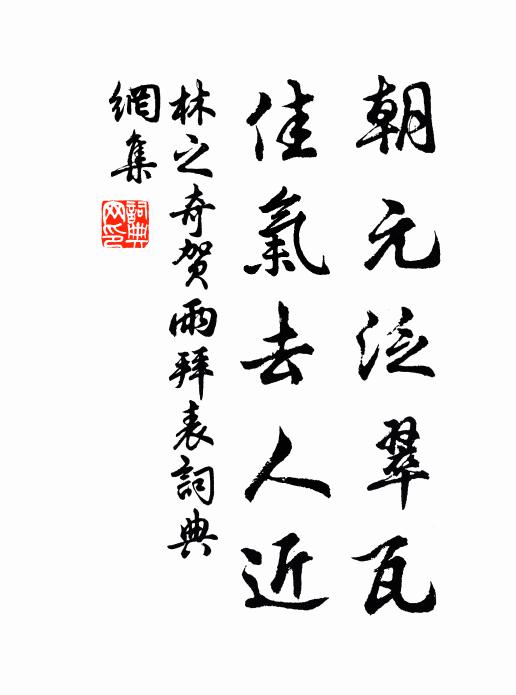 朝元泛翠瓦
佳氣去人近
林之奇贺雨拜表詞典
網集
詞典网印